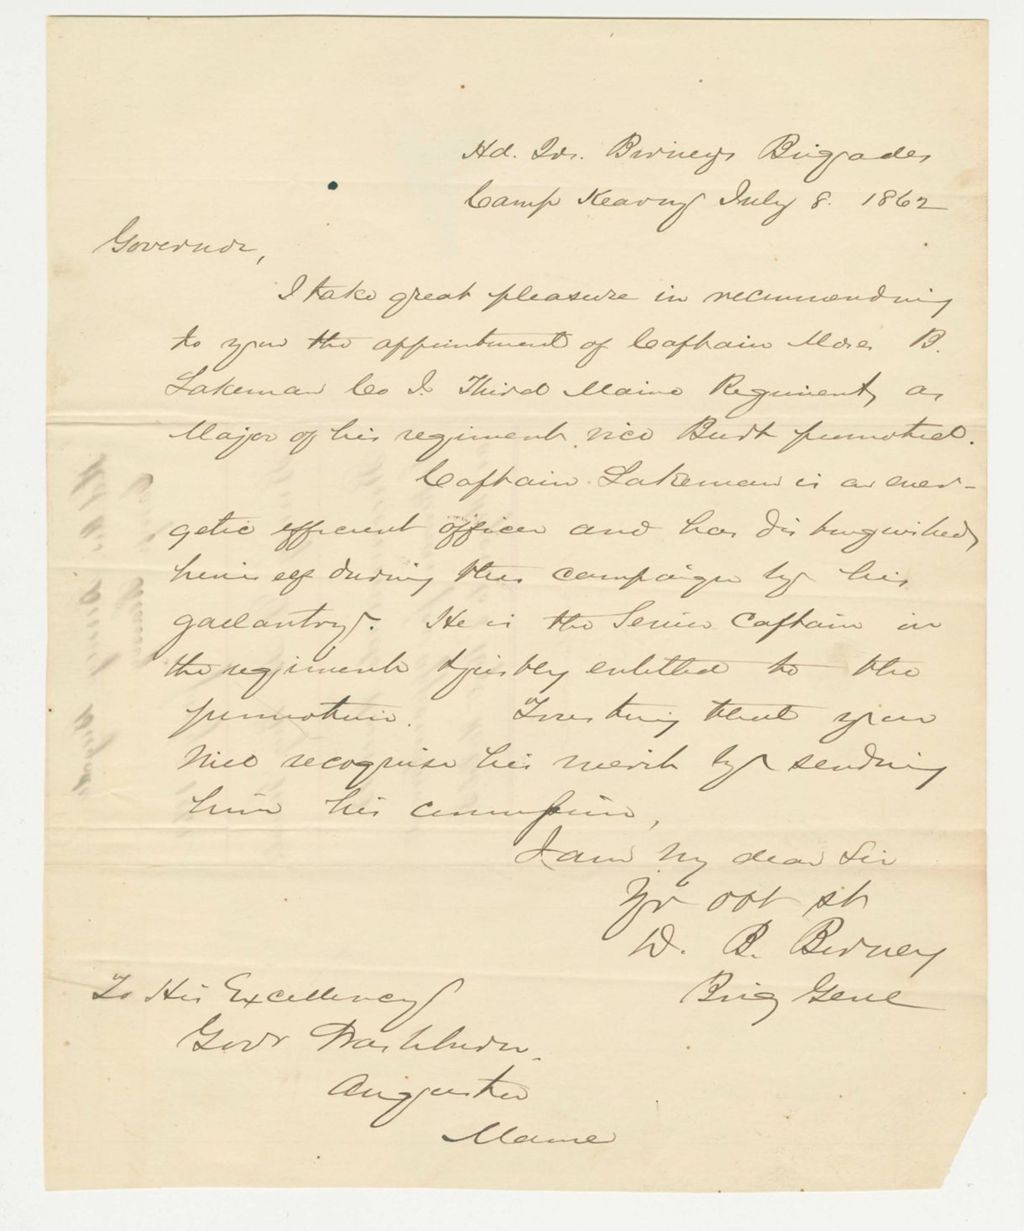 Hd. Qrs. Birneys Brigade
Camp Kearny July 8. 1862
Governor,
I take great pleasure in recommending
to you the appointment of Captain Moses B.
Lakeman Co I. Third Maine Regiment, as
Major of his regiment vice Burt promoted.
Captain Lakeman is an ener-
getic efficient officer and has distinguished
himself during this campaign by his
gallantry. He is the Senior Captain in
the regiment & justly entitled to the
promotion. Trusting that you
will recognise his merit by sending
him his commission,
I am my dear Sir
Yr obt st
D. B. Birney
Brig Genl
To His Excellency
Govr Washburn.
Augusta
Maine